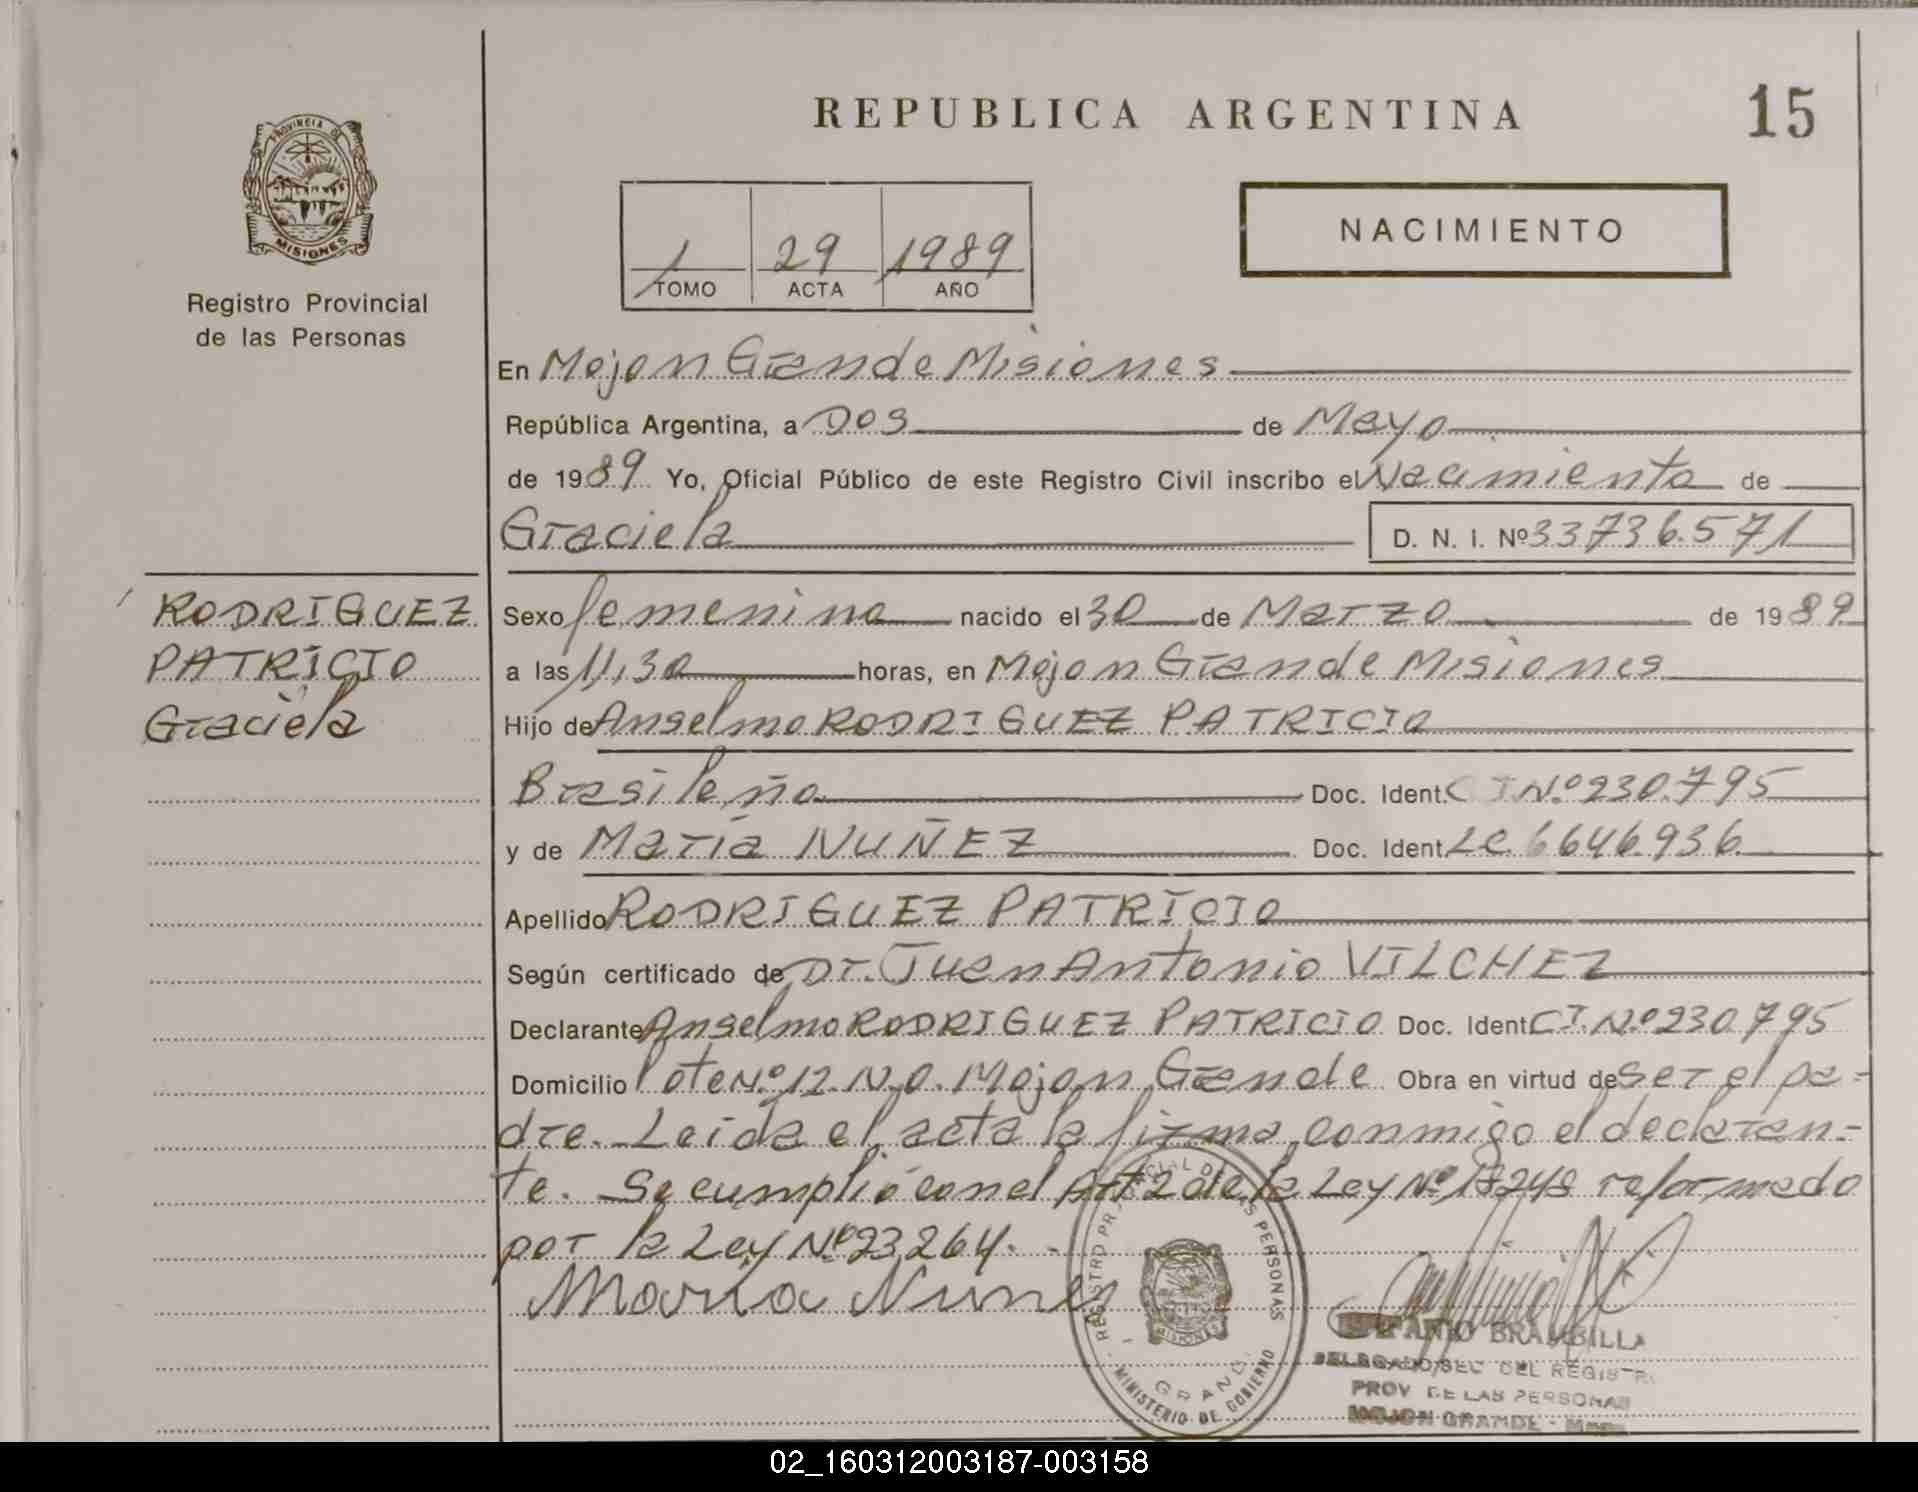 REPUBLICA ARGENTINA
15
PROVINCIA DE
MISIONES
Registro Provincial
de las Personas
1 29 1989
TOMO ACTA AÑO
NACIMIENTO
En Mojon Grande Misiones
República Argentina, a Dos de Mayo
de 1989 Yo, Oficial Público de este Registro Civil inscribo el Nacimiento de
Graciela D. N. I. Nº 33736.571
RODRIGUEZ
PATRICIO
Graciela
Sexo femenino nacido el 30 de Marzo de 1989
a las 11,30 horas, en Mojon Grande Misiones
Hijo de Anselmo RODRIGUEZ PATRICIO
Brasileño Doc. Ident. CI Nº 230.795
y de María NUÑEZ Doc. Ident. LC. 6646.936
Apellido RODRIGUEZ PATRICIO
Según certificado de Dr. Juan Antonio VILCHEZ
Declarante Anselmo RODRIGUEZ PATRICIO Doc. Ident CI. Nº 230.795
Domicilio lote Nº 12 N.O. Mojon Grande Obra en virtud de ser el pa-
dre. Leída el acta la firma conmigo el declaran-
te. Se cumplió con el Art 2 de la Ley Nº 18248 reformado
por la Ley Nº 23.264.
Maria Nunes
REGISTRO PROVINCIAL DE LAS PERSONAS
MISIONES
GRANDE
MINISTERIO DE GOBIERNO
BRAMBILLA
DELEGADO/SEC DEL REGISTR
PROV DE LAS PERSONAS
MOJON GRANDE - Mnes
02_160312003187-003158